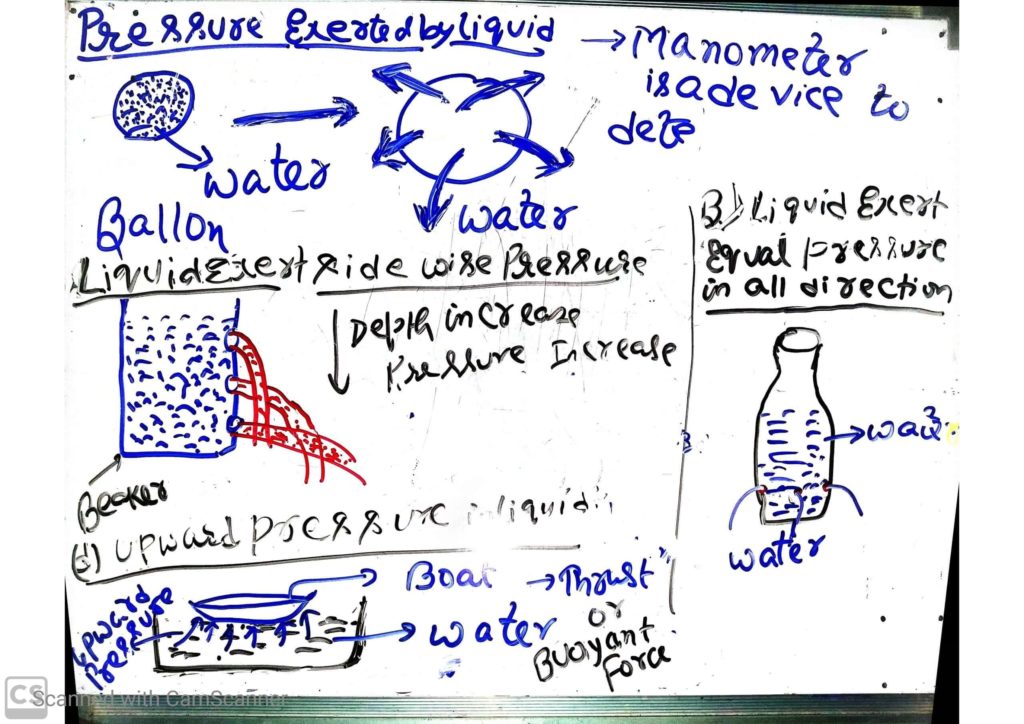 Pressure Exerted by Liquid
→ Manometer
is a device to
dete
water
water
Ballon
Liquid Exert Side wise Pressure
Depth increase
Pressure Increase
Beaker
B.) Liquid Exert
Equal pressure
in all direction
water
(d) upward pressure in liquid
Boat → Thrust
or
Buoyant
Force
water
Upward
Pressure
CS Scanned with CamScanner